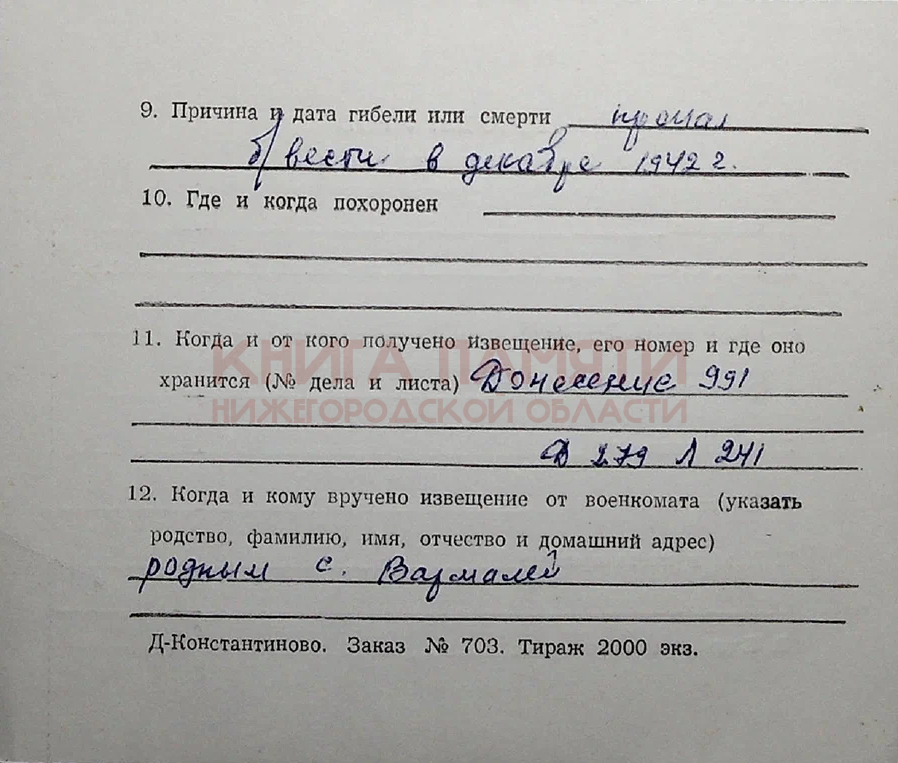 9. Причина и дата гибели или смерти пропал
б/вести в декабре 1942 г.
10. Где и когда похоронен
11. Когда и от кого получено извещение, его номер и где оно
КНИГА ПАМЯТИ
хранится (№ дела и листа) Донесение 991
НИЖЕГОРОДСКОЙ ОБЛАСТИ
Д 279 Л 241
12. Когда и кому вручено извещение от военкомата (указать
родство, фамилию, имя, отчество и домашний адрес)
родным с. Вармалей
Д-Константиново. Заказ № 703. Тираж 2000 экз.